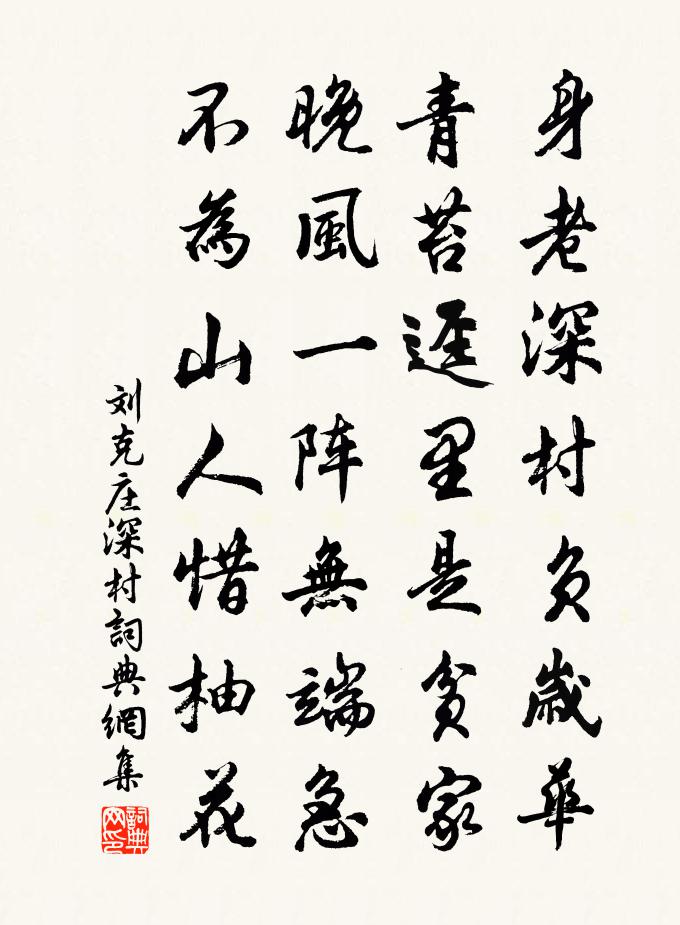 身老深村负歲華
青苔逕里是貧家
晚風一阵無端急
不為山人惜柚花
刘克庄深村詞典網集
詞典网印